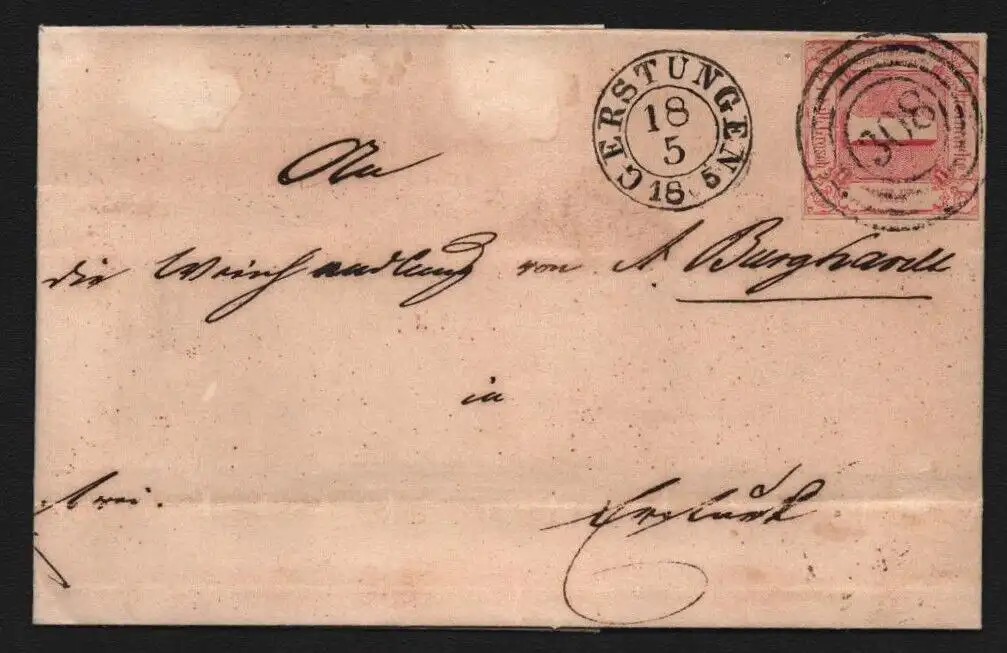 GERSTUNGEN
18
5
18 5
308
1
An
die Weinhandlung von A. Burghardt
in
frei.
Erfurt